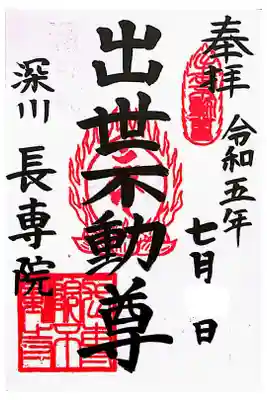 奉拝
令和五年
七月 日
出世不動尊
深川
長専院